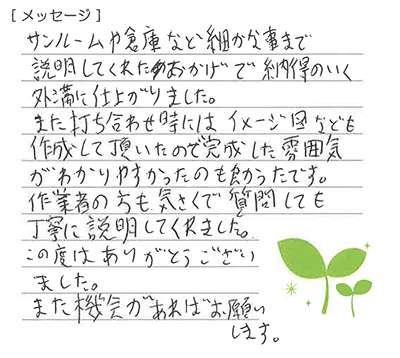 [メッセージ]
サンルームや倉庫など細かな事まで
説明してくれたおかげで納得のいく
外溝に仕上がりました。
また打ち合わせ時にはイメージ図なども
作成して頂いたので完成した雰囲気
がわかりやすかったのも良かったです。
作業者の方も気さくで質問しても
丁寧に説明してくれました。
この度はありがとうござい
ました。
また機会があればお願い
します。